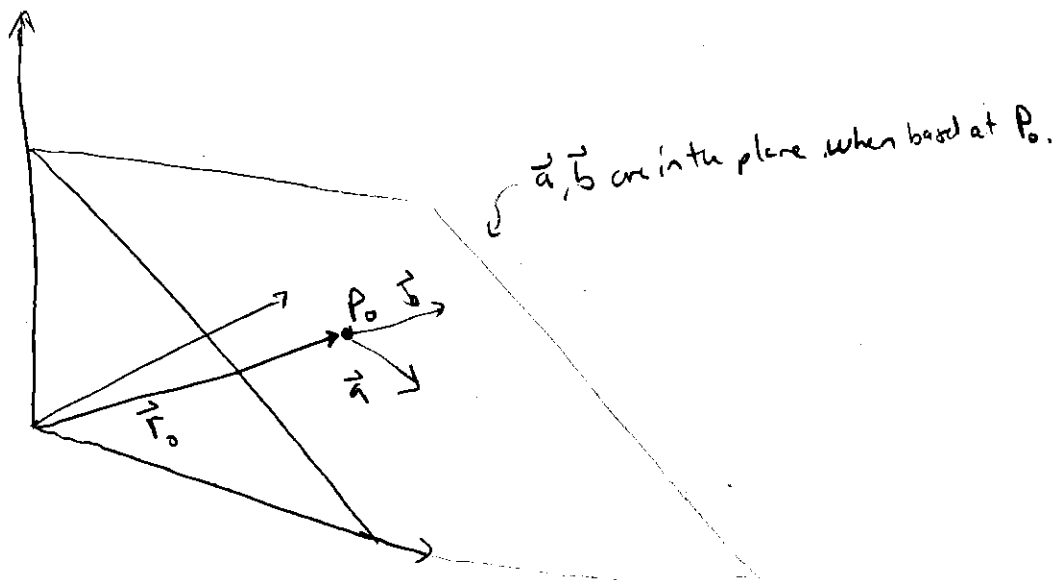 a⃗, b⃗ are in the plane when based at P₀.
P₀ b⃗
a⃗
r⃗₀